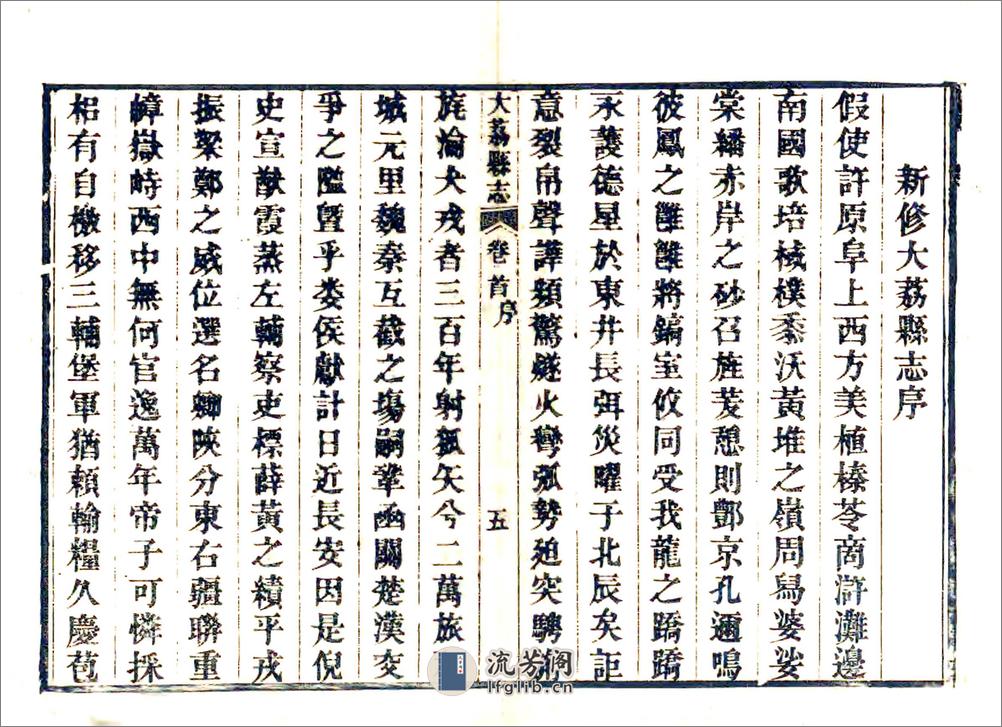 新修大荔縣志序
假使許原阜上西方美植榛苓商滸灘邊
南國歌培棫樸黍沃黃堆之嶺周舄婆娑
棠繙赤岸之砂召旌茇憩則酆京孔邇鳴
彼鳳之雝雝將鎬室攸同受我龍之蹻蹻
永護德星於東井長弭災曜于北辰矣詎
意裂帛聲譁頻驚燧火彎弧勢廹突騁
大荔縣志 卷首序 五
旄淪犬戎者三百年射狐矢兮二萬旅
城元里魏秦互戳之塲嗣鞏函關楚漢交
爭之隘曁乎婁侯獻計日近長安因是倪
史宣猷霞蒸左輔察吏標薛黃之績平戎
振翏鄭之威位選名卿陝分東右疆聯重
嶂嶽峙西中無何官逸萬年帝子可憐採
梠有自檄移三輔堡軍猶賴輸糧久慶苞
流芳阁
lfglib.cn